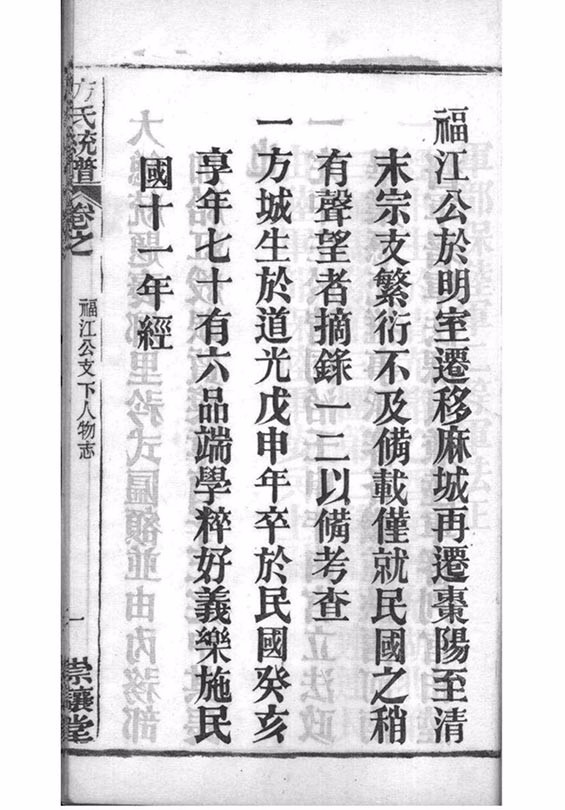 福江公於明室遷移麻城再遷棗陽至清
末宗支繁衍不及備載僅就民國之稍
有聲望者摘錄一二以備考查
一方城生於道光戊申年卒於民國癸亥
享年七十有六品端學粹好義樂施民
國十一年經
方氏統譜
卷之
福江公支下人物志
一
崇讓堂